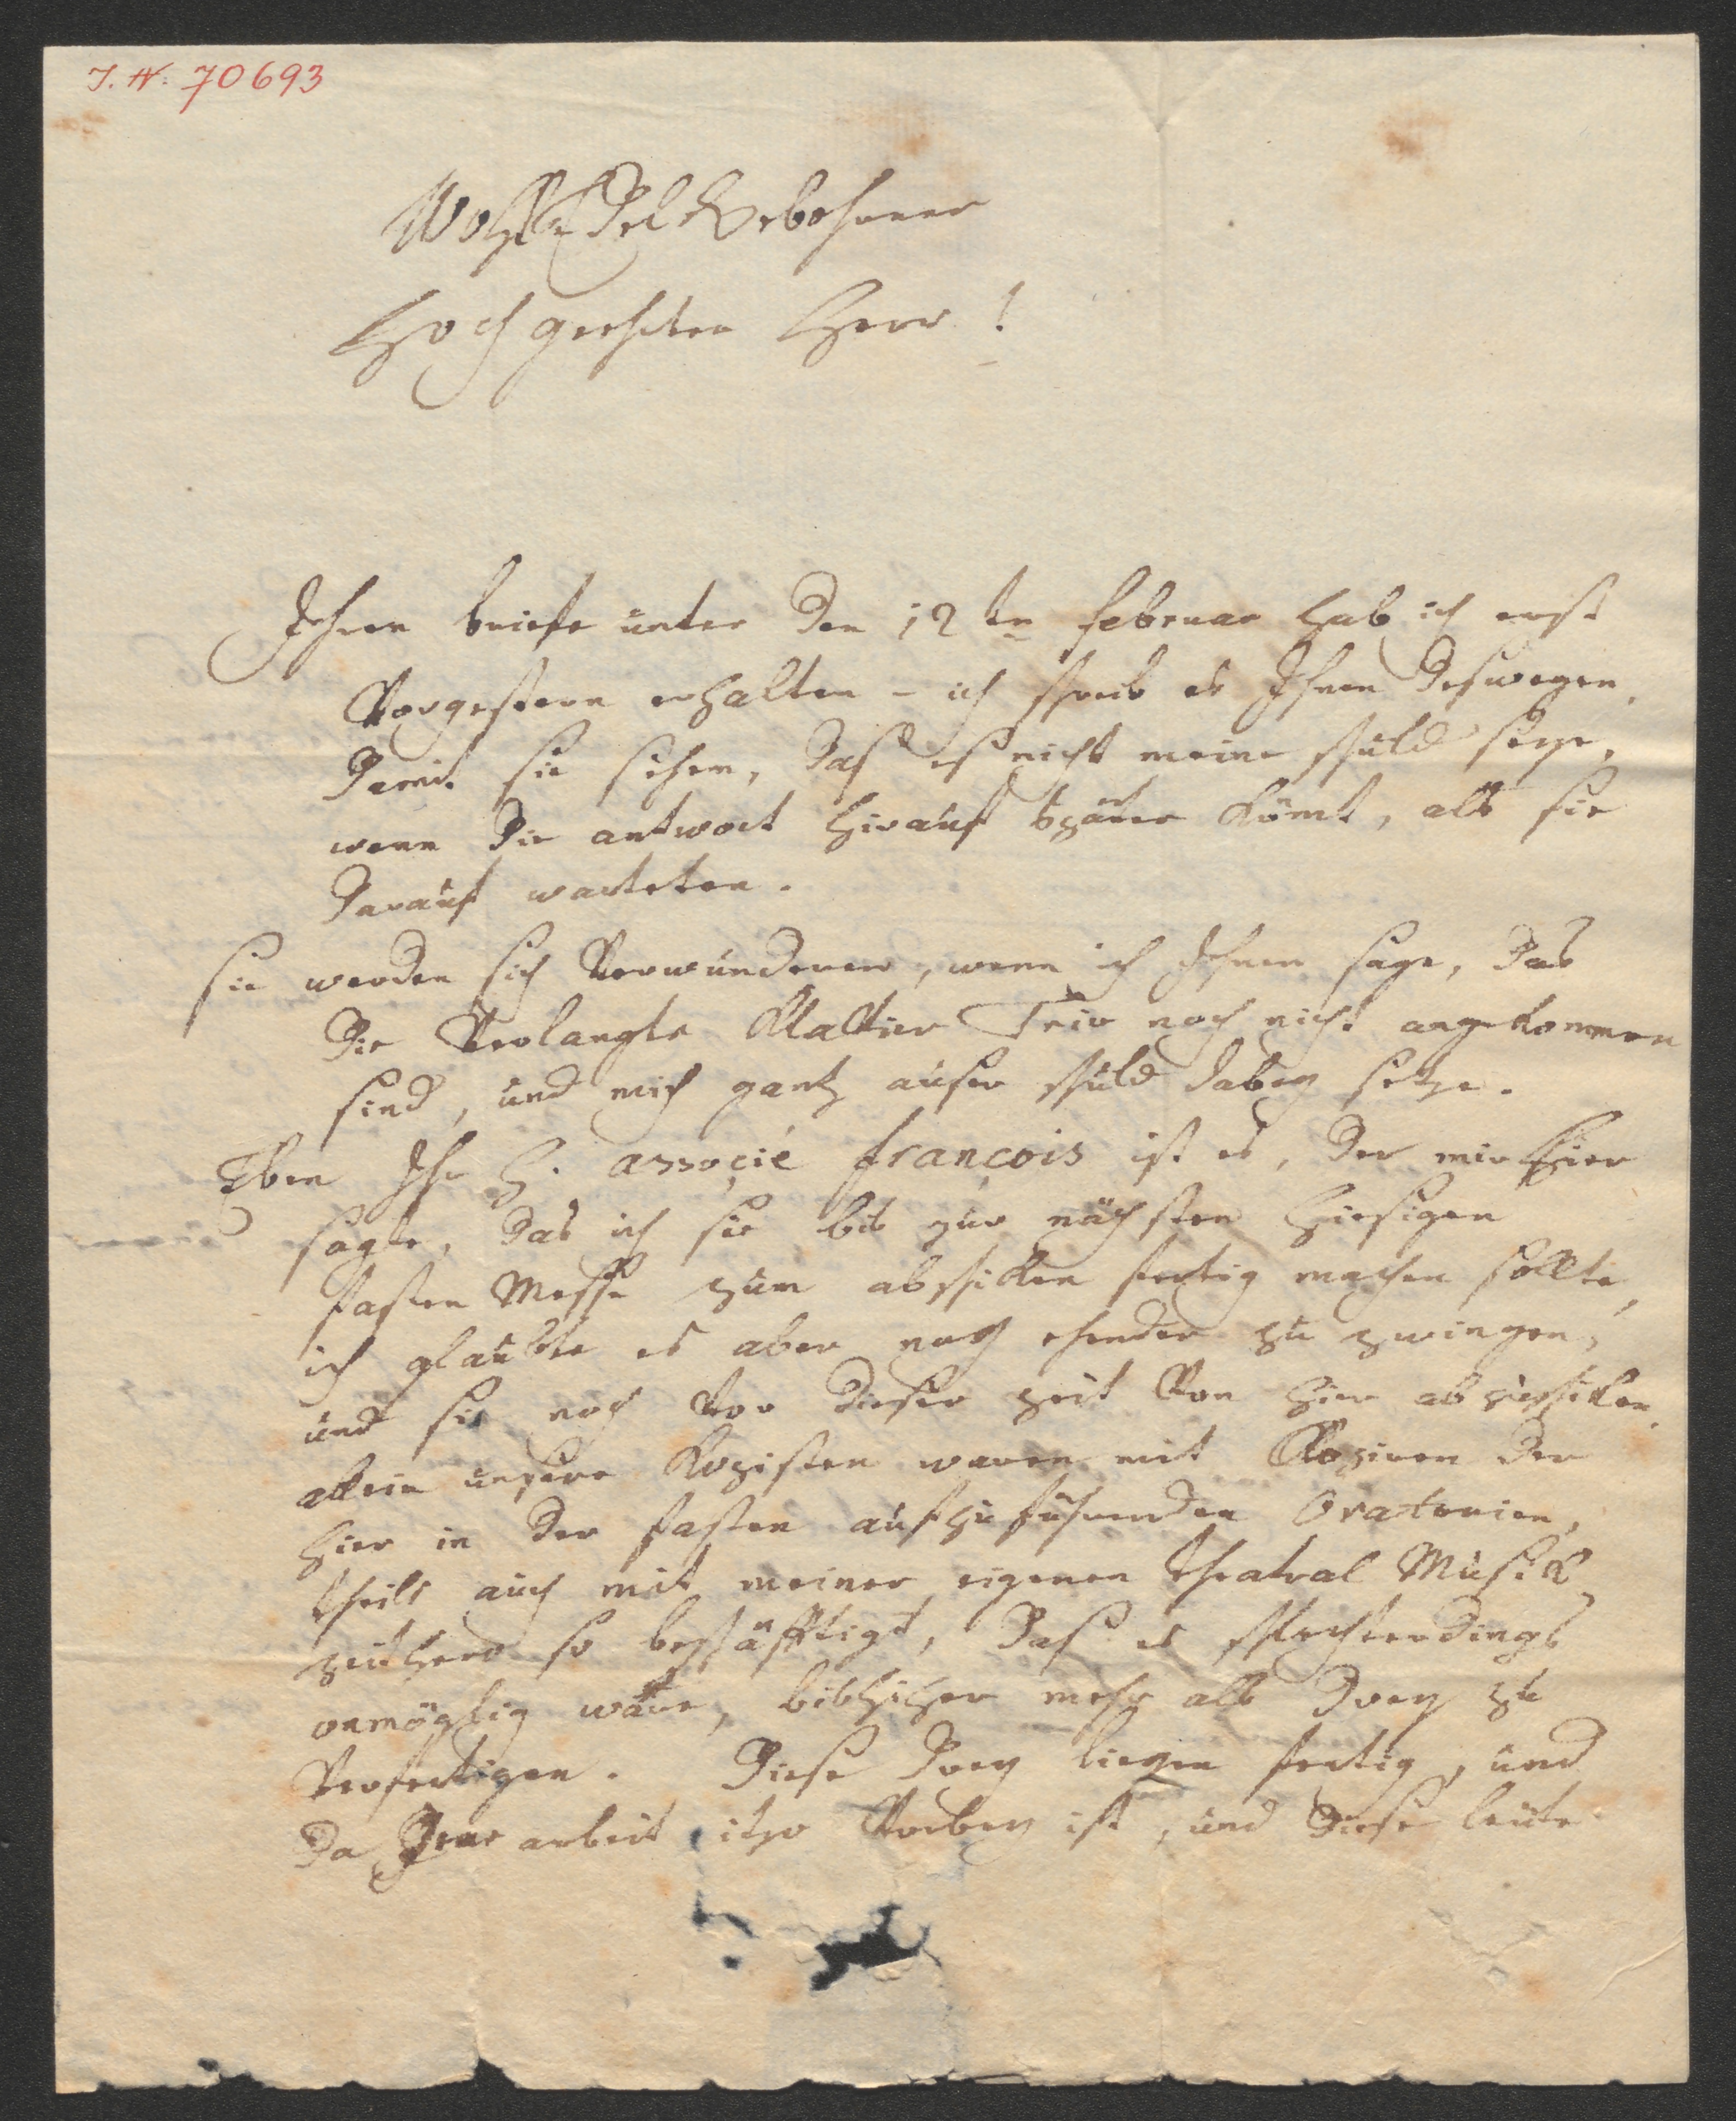 J. N. 70693
WohlEdelGebohrner
Hochgeehrter Herr!
Ihren briefe unter den 12ten februar hab ich erst
Vorgestern erhalten – ich schreib es Ihnen deswegen,
damit sie sehen, daß es nicht meine schuld seye,
wenn die antwort hierauf später kömt, als sie
darauf warteten.
sie werden sich Verwunderen, wenn ich Ihnen sage, das
die Verlangte Klavier Trio noch nicht angekommen
sind, und mich gantz auser schuld dabey setze.
Eben Ihr H. associé françois ist es, der mir hier
sagte, das ich sie bis zur nächsten hiesigen
fasten Messe zum abschicken fertig machen sollte,
ich glaubte es aber noch ehender zu zwingen,
und sie noch vor dieser zeit von hier abzuschicken.
allein unsere Kopisten waren mit Kopiren der
hier in der fasten aufzuführenden Oratorien,
theils auch mit meiner eigenen theatral Musik
zeithero so beschäfftigt, daß es schlechterdings
onmöglig wäre, bishiher mehr als drey zu
Verfertigen. Diese drey liegen fertig, und
da jene arbeit itzo Vorbey ist, und diese leute